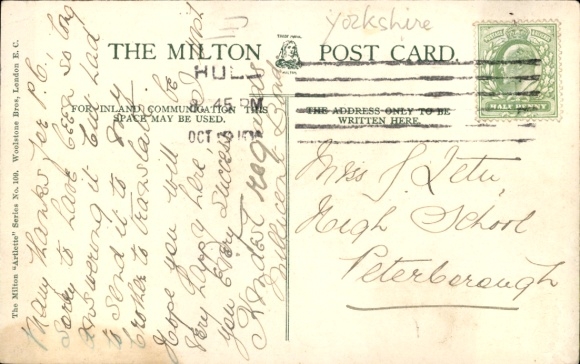 Yorkshire
THE MILTON POST CARD.
HULL
45 PM
OCT
FOR INLAND COMMUNICATION THIS
SPACE MAY BE USED.
THE ADDRESS ONLY TO BE
WRITTEN HERE.
HALF PENNY
Miss J.
High School
Peterborough
The Milton "Artlette" Series No. 109. Woolstone Bros., London E. C.
Many thanks for P.C.,
Sorry to have been so long
answering it but had
to send it to my
brother to translate. I
Hope you will be
very happy here
you every success
Kindest regards